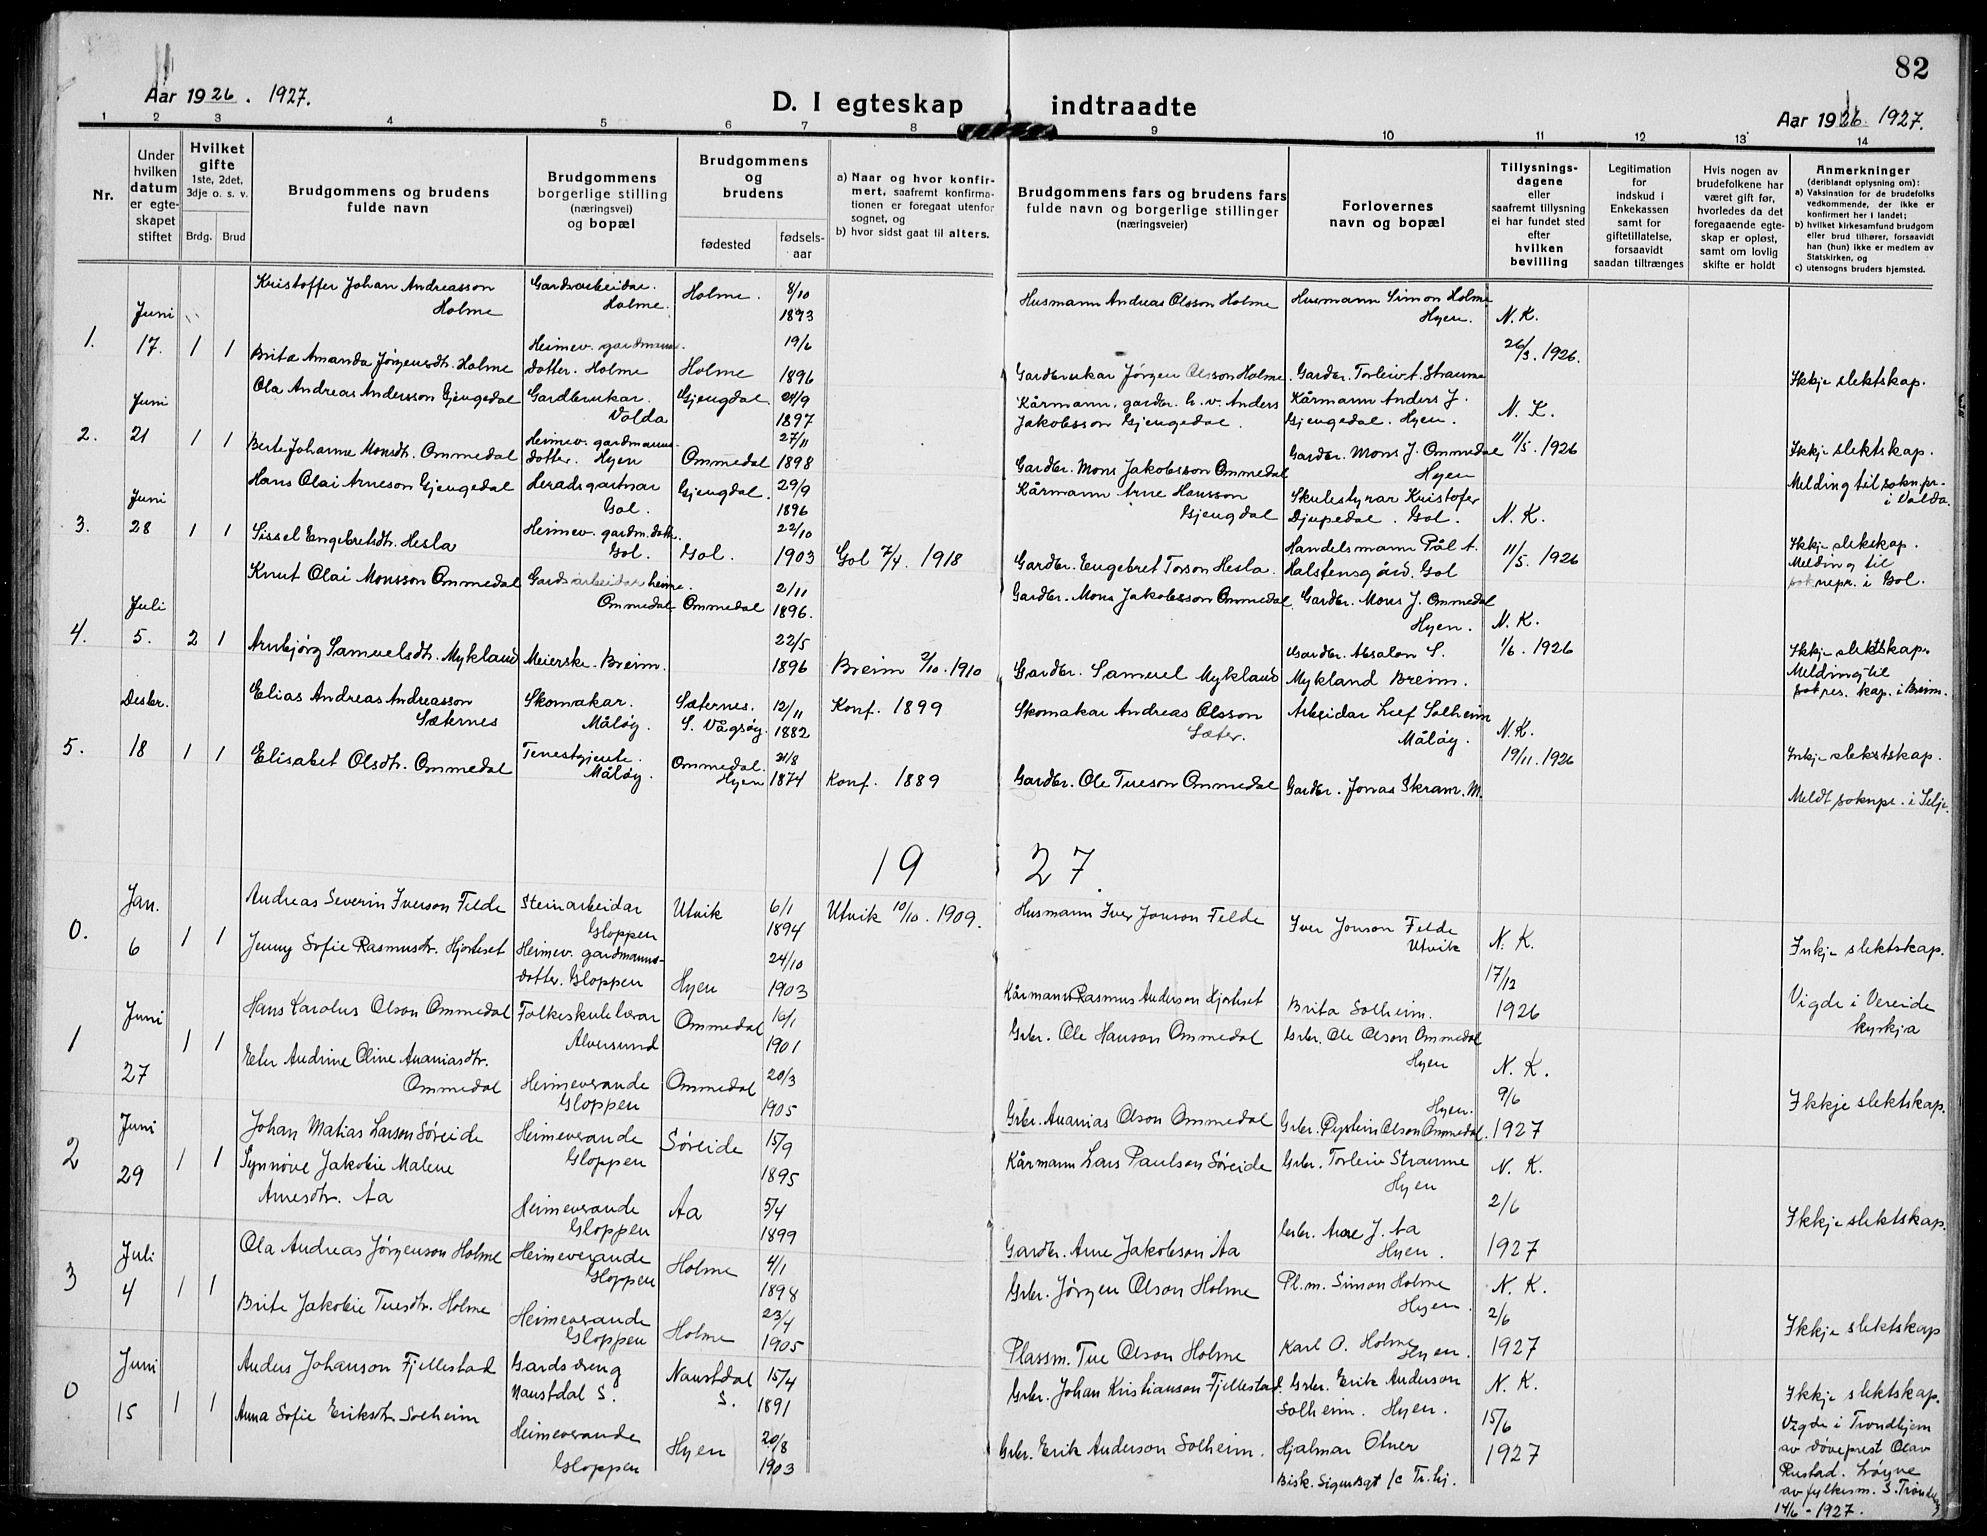 82
Aar 1926. 1927.
D. I egteskap indtraadte
Aar 1926 1927.
1 2 3 4 5 6 7 8 9 10 11 12 13 14
Nr.
Under hvilken datum er egteskapet stiftet
Hvilket gifte
1ste, 2det, 3dje o. s. v.
Brdg. Brud
Brudgommens og brudens
fulde navn
Brudgommens
borgerlige stilling
(næringsvei)
og bopæl
Brudgommens
og
brudens
fødested fødselsaar
a) Naar og hvor konfirmert, saafremt konfirmationen er foregaat utenfor sognet, og
b) hvor sidst gaat til alters.
Brudgommens fars og brudens fars
fulde navn og borgerlige stillinger
(næringsveier)
Forlovernes
navn og bopæl
Tillysningsdagene
eller
saafremt tillysning
ei har fundet sted
efter
hvilken
bevilling
Legitimation
for
indskud i
Enkekassen
samt for
giftetillatelse,
forsaavidt
saadan tiltrænges
Hvis nogen av
brudefolkene har
været gift før,
hvorledes da det
foregaaende egteskap er opløst,
samt om lovlig
skifte er holdt
Anmerkninger
(deriblandt oplysning om):
a) Vaksination for de brudefolks vedkommende, der ikke er konfirmert her i landet;
b) hvilket kirkesamfund brudgom eller brud tilhører, forsaavidt han (hun) ikke er medlem av Statskirken, og
c) utensogns bruders hjemsted.
1. Juni 17. 1 1
Kristoffer Johan Andreasson Holme
Gardsarbeidar. Holme.
Holme. 8/10 1893
Husmann Andreas Olsson Holme
Husmann Simon Holme Hyen.
N. K. 26/3. 1926.
Brita Amanda Jørgensdtr. Holme
Heimev. gardmanns. dotter. Holme
Holme 19/6 1896
Gardbrukar Jørgen Olsson Holme.
Gardbr. Torleiv A. Straume
Ikkje slektskap.
2. Juni 21 1 1
Ola Andreas Andersson Gjengedal
Gardbrukar. Volda
Gjengdal. 21/9 1897
Kårmann, gardbr. h. v. Anders Jakobsson Gjengedal.
Kårmann Anders J. Gjengedal. Hyen.
N. K. 11/5. 1926
Berte Johanne Monsdtr. Ommedal
Heimev. gardmanns. dotter. Hyen
Ommedal 27/11 1898
Gardbr. Mons Jakobsson Ommedal
Gardbr. Mons J. Ommedal Hyen
Ikkje slektskap.
Melding til soknpr. i Valda.
3. Juni 28 1 1
Hans Olai Arneson Gjengedal
Heradsgartnar Gol.
Gjengdal. 29/9 1896
Kårmann Arne Hansson Gjengdal
Skulestyrar Kristofer Djupedal. Gol.
N. K. 11/5. 1926
Sissel Engebretsdtr. Hesla
Heimev. gardm. dotter. Gol.
Gol. 22/10 1903
Gol 7/4. 1918
Gardbr. Engebret Torson Hesla.
Handelsmann Pål A. Halstensgård. Gol
Ikkje slekskap.
Melding til soknepr. i Gol.
4. Juli 5. 2 1
Knut Olai Monsson Ommedal
Gardsarbeidar heime. Ommedal
Ommedal 2/11 1896.
Gardbr. Mons Jakobsson Ommedal
Gardbr. Mons J. Ommedal Hyen.
N. K. 1/6. 1926
Arnbjørg Samuelsdtr. Mykland
Meierske. Breim.
22/5 1896
Breim 2/10. 1910
Gardbr. Samuel Mykland
Gardbr. Absalon S. Mykland Breim.
Ikkje slektskap.
Melding til sokres. kap. i Breim.
5. Desbr. 18 1 1
Elias Andreas Andreasson Sæternes
Skomakar. Måløy.
Sæternes. S. Vågsøy. 12/11 1882
Konf. 1899
Skomakar Andreas Olsson Sæter.
Arbeidar Leif Solheim Måløy.
N. K. 19/11. 1926
Elisabet Olsdtr. Ommedal
Tenestgjente. Måløy.
Ommedal. Hyen 21/8 1874
Konf. 1889
Gardbr. Ole Tueson Ommedal
Gardbr. Jonas Skram. M.
Inkje slekstskap.
Meldt soknpr. i Selje.
19 27.
0. Jan. 6 1 1
Andreas Severin Iverson Felde
Steinarbeidar Gloppen
Utvik 6/1 1894
Utvik 10/10. 1909.
Husmann Iver Jonson Felde
Iver Jonson Felde Utvik
N. K. 17/12 1926
Jenny Sofie Rasmusdtr. Hjorteset
Heimev. gardmanns-dotter. Gloppen
Hyen 24/10 1903
Kårmann Rasmus Anderson Hjorteset
Brita Solheim.
Inkje slektskap.
Vigde i Vereide kyrkja
1 Juni 27 1 1
Hans Karolus Olson Ommedal
Folkeskulelærar Alversund
Ommedal 16/1 1901
Grbr. Ole Hanson Ommedal
Grbr. Ole Olson Ommedal Hyen
N. K. 9/6 1927
Eler Andrine Oline Ananiasdtr. Ommedal
Heimeverande Gloppen
Ommedal 20/3 1905
Grbr. Ananias Olson Ommedal
Grbr. Øystein Olson Ommedal. Hyen.
Ikkje slektskap.
2 Juni 29 1 1
Johan Matias Larson Søreide
Heimeverande Gloppen
Søreide 15/9 1895
Kårmann Lars Paulson Søreide
Grbr. Torleiv Straume Hyen
N. K. 2/6 1927
Synnøve Jakobie Malene Arnesdtr. Aa
Heimeverande Gloppen
Aa 5/4 1899
Gardbr. Arne Jakobson Aa
Grbr. Arne J. Aa Hyen.
Ikkje slektskap.
3 Juli 4 1 1
Ola Andreas Jørgenson Holme
Heimeverande Gloppen
Holme 4/1 1898
Grbr. Jørgen Olson Holme
Pl.m. Simon Holme Hyen.
N. K. 2/6 1927
Brite Jakobie Tuesdtr. Holme
Heimeverande Gloppen
Holme 23/4 1905
Plassm. Tue Olson Holme
Karl O. Holme Hyen.
Ikkje slektskap
0 Juni 15 1 1
Anders Johanson Fjellestad
Gardsdreng Naustdal S.
Naustdal S. 15/4 1891
Grbr. Johan Kristianson Fjellestad.
Grbr. Erik Anderson Solheim. Hyen.
N. K. 15/6 1927
Anna Sofie Eriksdtr. Solheim
Heimeverande Gloppen
Hyen 20/8 1903
Grbr. Erik Anderson Solheim.
Hjalmar Olner
Bisk. Sigurdsgt 1c Tr.hj.
Ikkje slektskap.
Vigde i Trondhjem av døveprest Olav Rustad. Løyve av fylkesm. S. Trøndelag 14/6 - 1927.